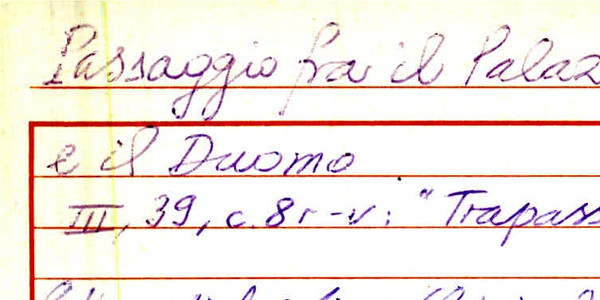 Passaggio fra il Palaz
e il Duomo
III, 39, c. 8r-v: "Trapass